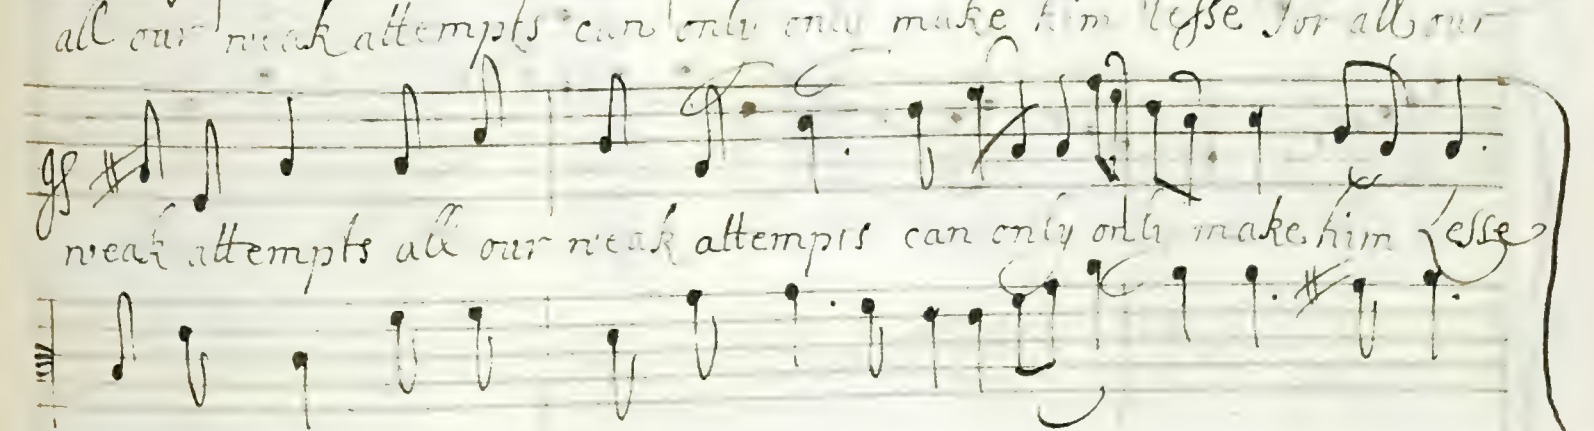 all our weak attempts can only only make him lesse for all our
weak attempts all our weak attempts can only only make him lesse